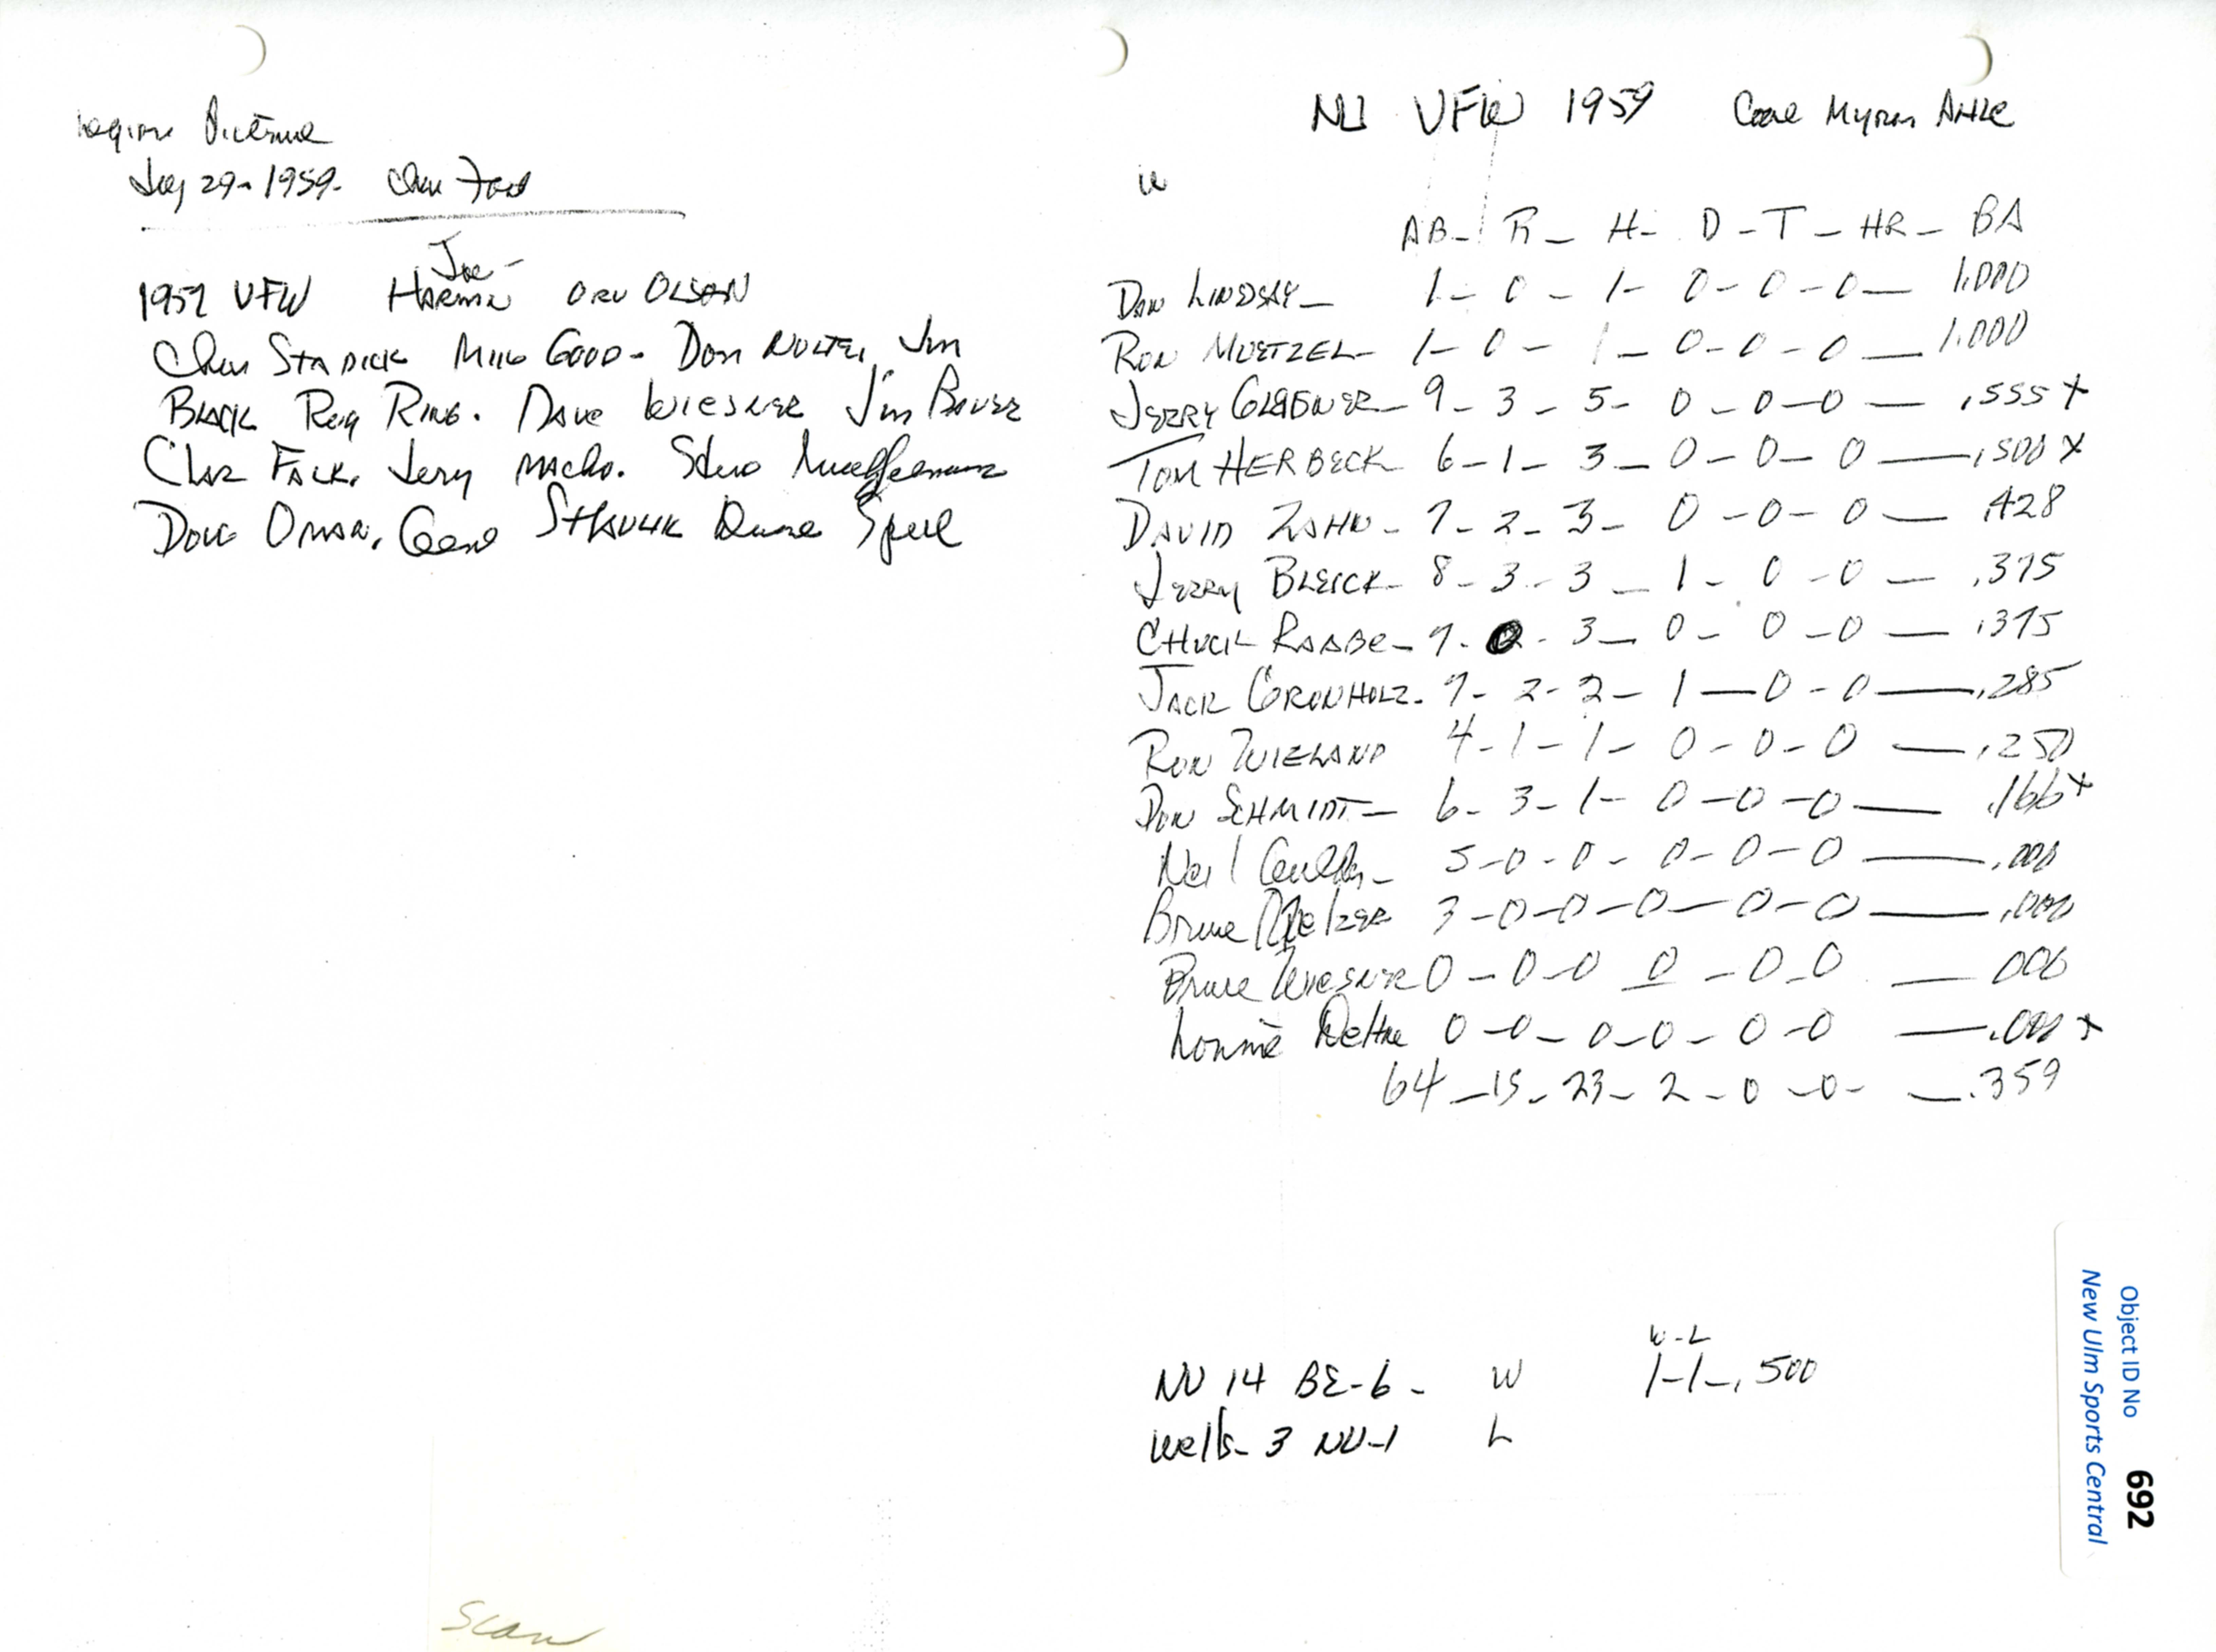 Legion Picture
July 29-1959-
Joe-
1957 VFW HARMAN ORV OLSON
STADICK MIKE GOOD- DON NOLTE, Jim
BLACK Reg RING. DAVE WIESNER Jim BAUER
FALK. Jerry MACHO. Steve
DOUG OMAN. Gene Duane
NU VFW 1959 Coach Myron AHLE
AB- R- H- D-T-HR- BA
DON LINDSAY- 1-0-1-0-0-0- 1.000
RON MUETZEL- 1-0-1-0-0-0- 1.000
JERRY GLEISNER- 9-3-5-0-0-0- .555 X
TOM HERBECK 6-1-3-0-0-0- .500 X
DAVID ZAHN- 7-2-3-0-0-0- .428
JERRY BLEICK- 8-3-3-1-0-0- .375
CHUCK RAABE- 7-0-3-0-0-0- .375
JACK GRONHOLZ- 7-2-2-1-0-0- .285
RON WIELAND 4-1-1-0-0-0- .250
DON SCHMIDT- 6-3-1-0-0-0- .166 X
Neil 5-0-0-0-0-0- .000
Bruce 3-0-0-0-0-0- .000
Bruce WIESNER 0-0-0-0-0-0- 000
Lonnie 0-0-0-0-0-0- .000 X
64-15-23-2-0-0- .359
W-L
NU 14 BE-6- W 1-1-.500
Wells-3 NU-1 L
Object ID No 692
New Ulm Sports Central
Scan